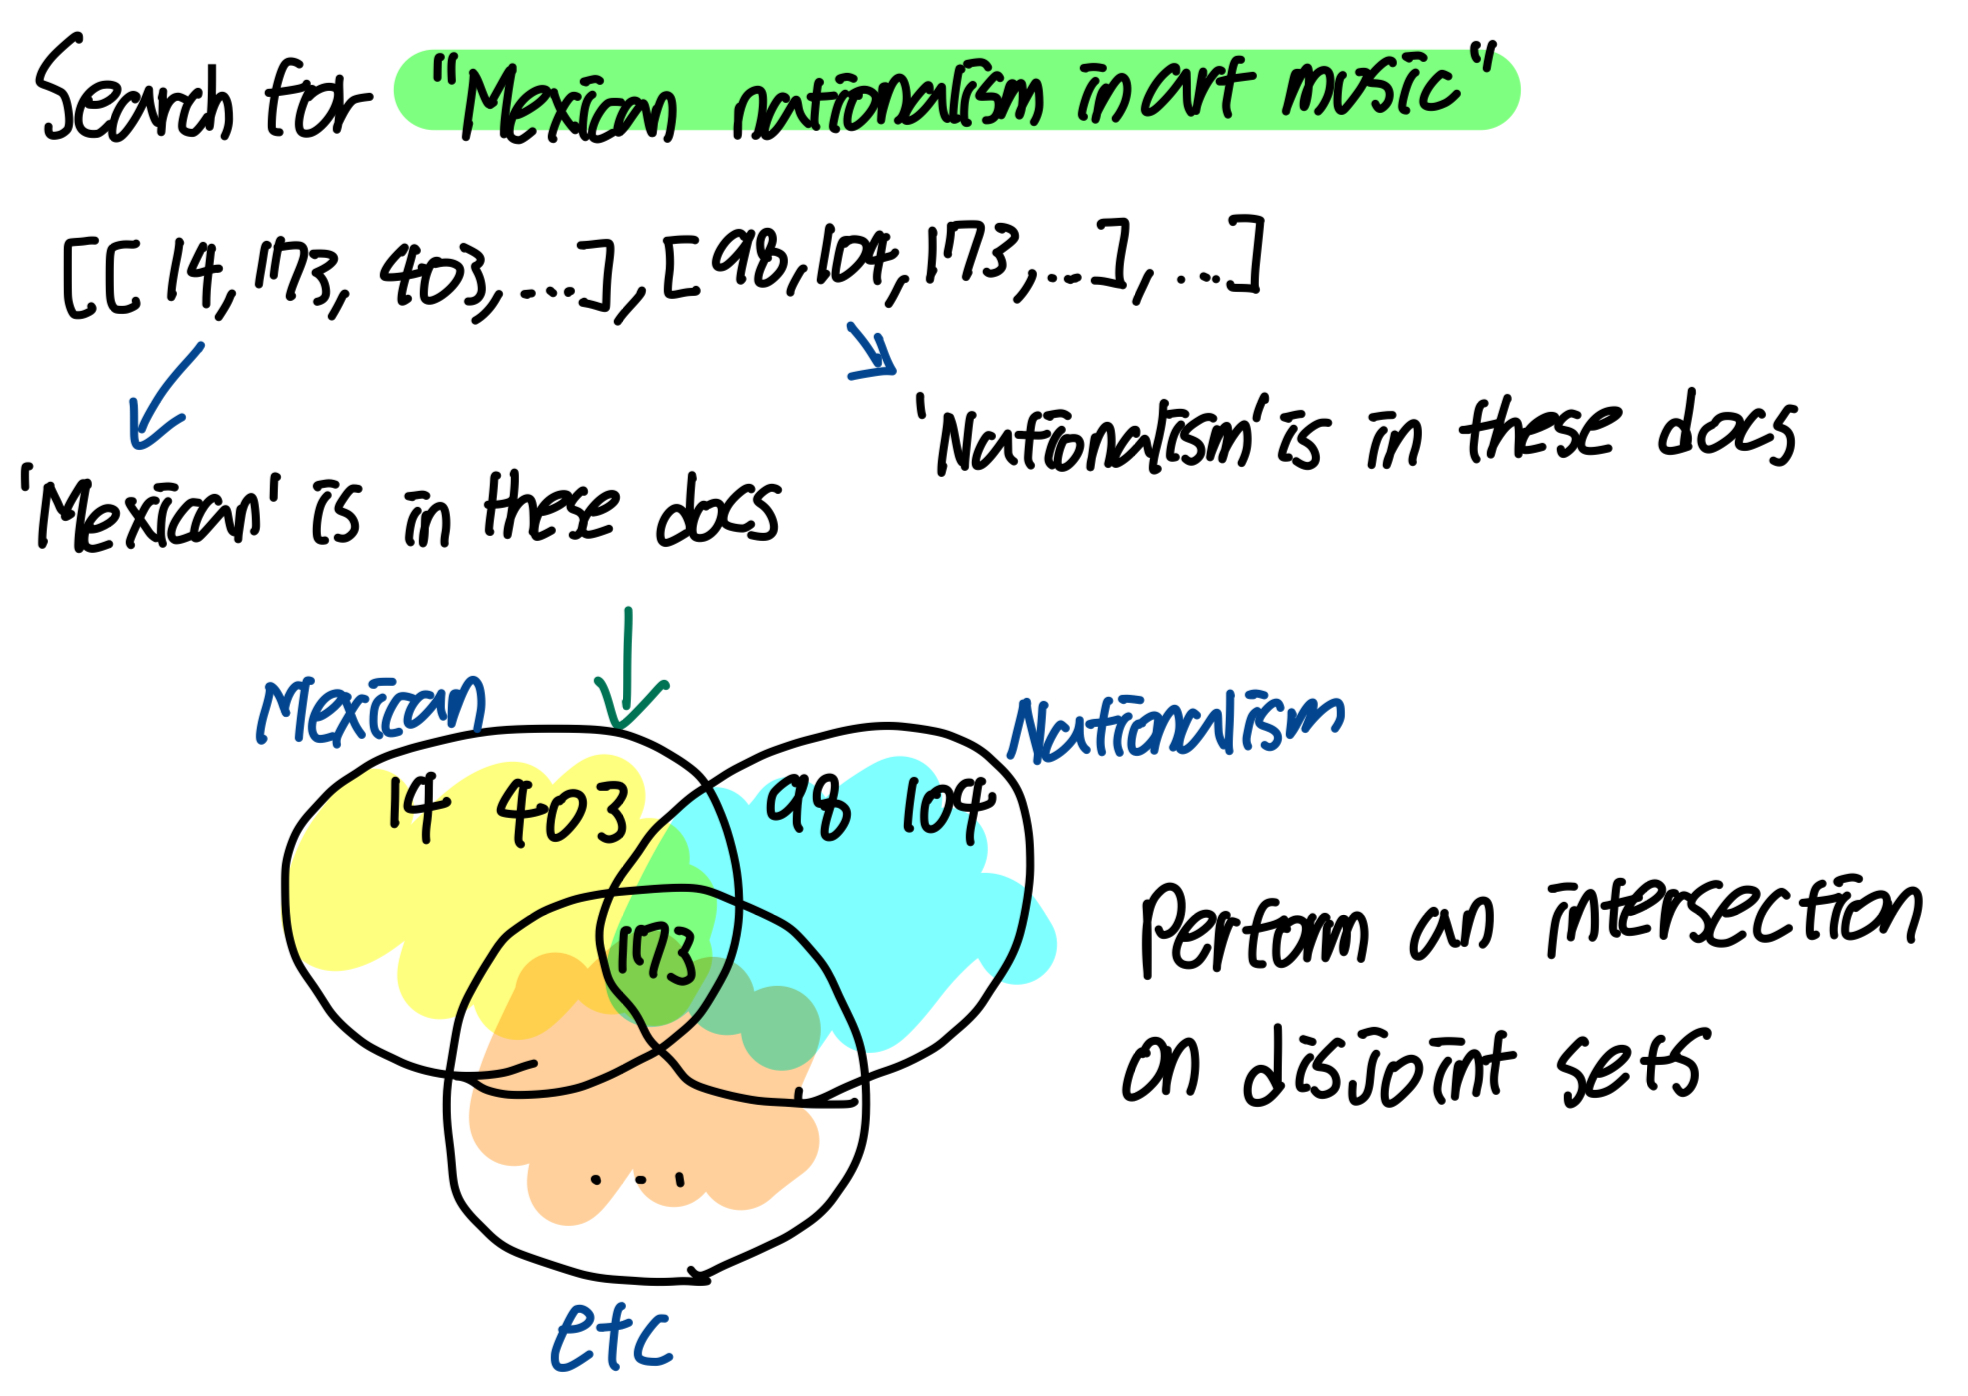 Search for "Mexican nationalism in art music"
[[14, 173, 403, ...], [98, 104, 173, ...], ...]
'Nationalism' is in these docs
'Mexican' is in these docs
Mexican
Nationalism
14 403
98 104
173
Perform an intersection
on disjoint sets
...
etc